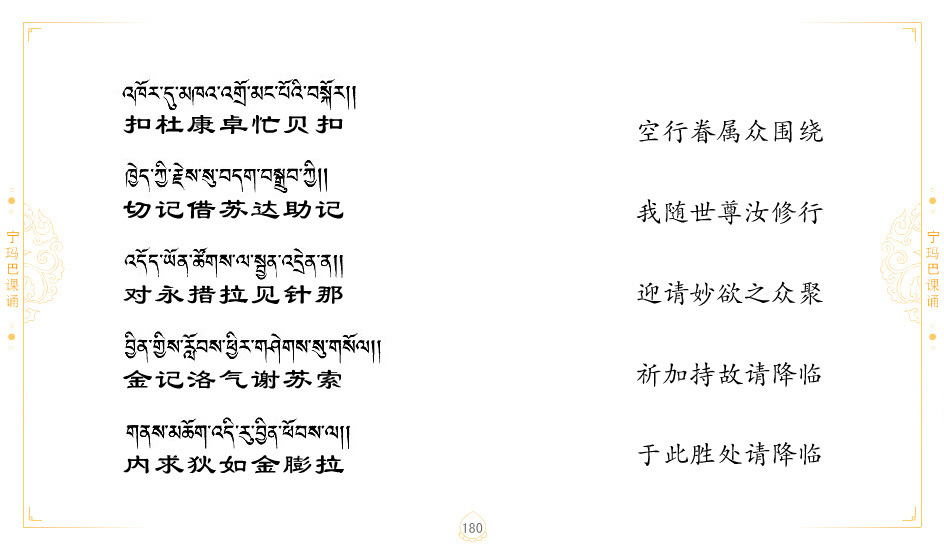 འཁོར་དུ་མཁའ་འགྲོ་མང་པོའི་བསྐོར།།
扣杜康卓忙贝扣
ཁྱེད་ཀྱི་རྗེས་སུ་བདག་བསྒྲུབ་ཀྱི།།
切记借苏达助记
འདོད་ཡོན་ཚོགས་ལ་སྤྱན་འདྲེན་ན།།
对永措拉见针那
བྱིན་གྱིས་རློབས་ཕྱིར་གཤེགས་སུ་གསོལ།།
金记洛气谢苏索
གནས་མཆོག་འདི་རུ་བྱིན་ཕོབས་ལ།།
内求狄如金膨拉
空行眷属众围绕
我随世尊汝修行
迎请妙欲之众聚
祈加持故请降临
于此胜处请降临
宁玛巴课诵
宁玛巴课诵
180